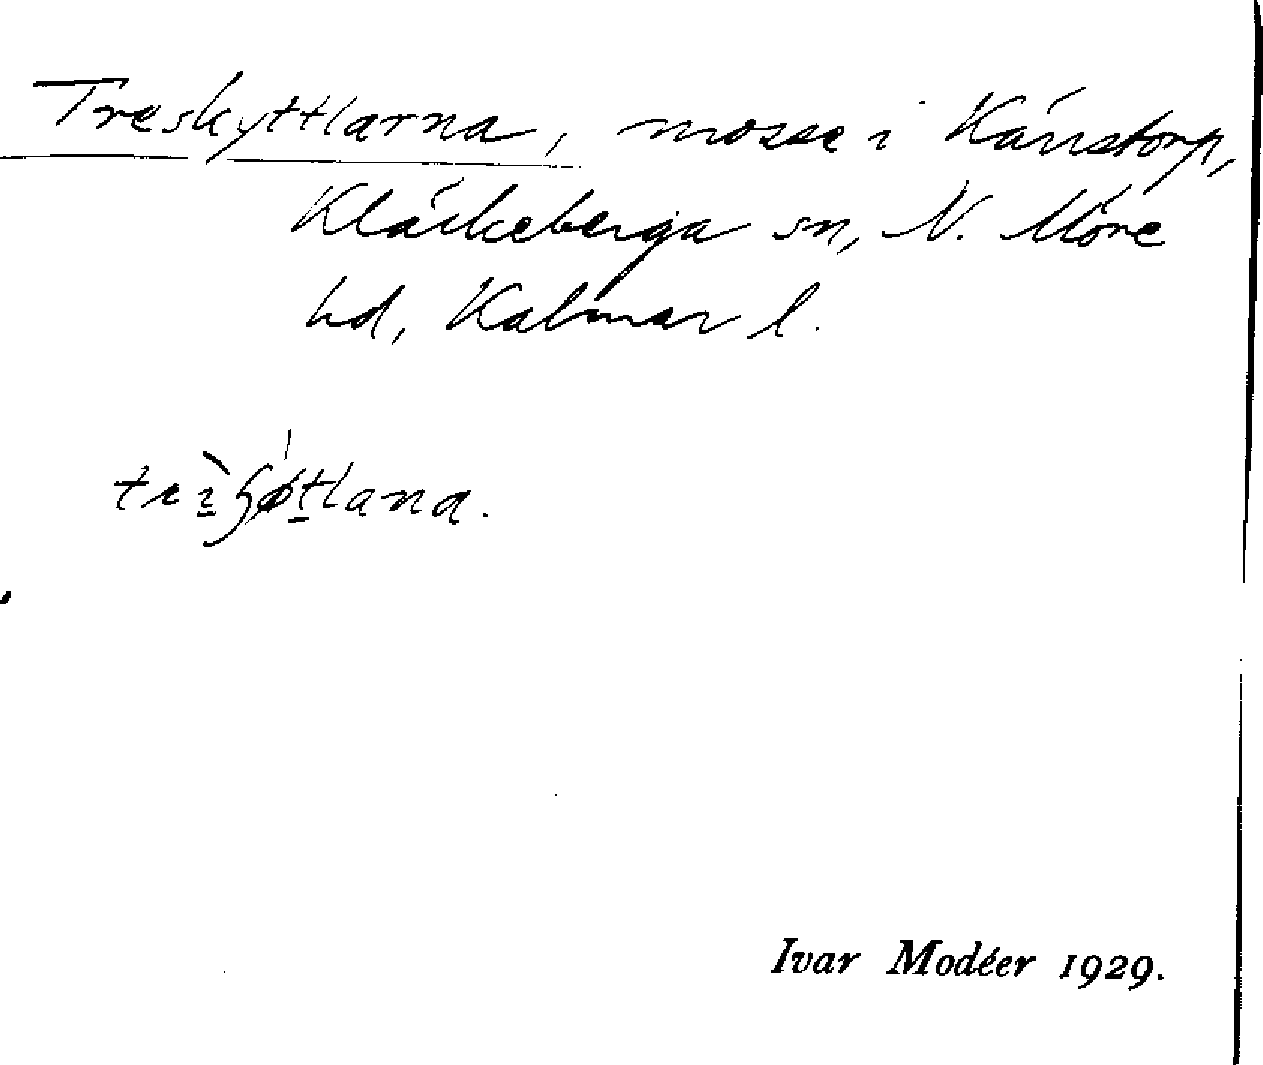 Treskyttlarna, mosse i Kärrstorp,
Kläckeberga sn, N. Möre
hd, Kalmar l.
Ivar Modéer 1929.